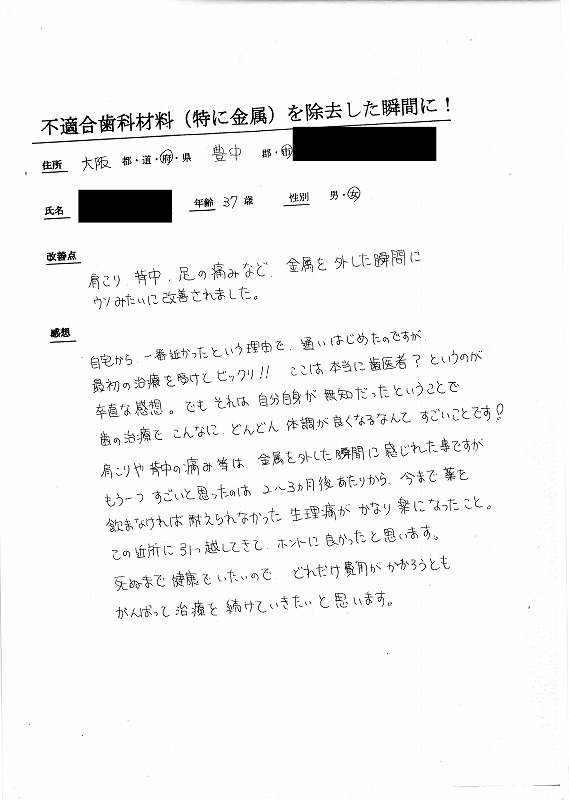 不適合歯科材料（特に金属）を除去した瞬間に！
住所 大阪 都・道・府・県 豊中 郡・市
氏名 年齢 37 歳 性別 男・女
改善点
肩こり 背中、足の痛みなど、金属を外した瞬間に
ウソみたいに改善されました。
感想
自宅から、一番近かったという理由で、通いはじめたのですが、
最初の治療を受けてビックリ!! ここは本当に歯医者？というのが
卒直な感想。でもそれは自分自身が無知だったということで
歯の治療でこんなに、どんどん体調が良くなるなんてすごいことです！
肩こりや背中の痛み等は、金属を外した瞬間に感じれた事ですが
もう一つすごいと思ったのは 2〜3ヵ月後あたりから、今まで薬を
飲まなければ耐えられなかった生理痛がかなり楽になったこと。
この近所に引っ越してきて、ホントに良かったと思います。
死ぬまで健康でいたいので どれだけ費用がかかろうとも
がんばって治療を続けていきたいと思います。